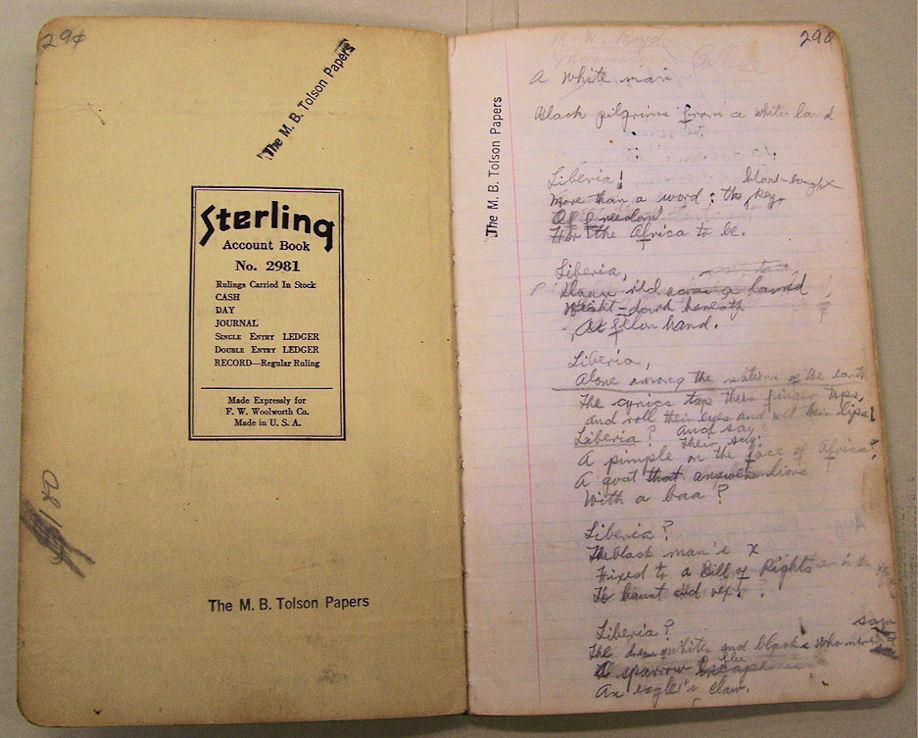 29¢
The M. B. Tolson Papers
Sterling
Account Book
No. 2981
Rulings Carried In Stock
CASH
DAY
JOURNAL
SINGLE ENTRY LEDGER
DOUBLE ENTRY LEDGER
RECORD—Regular Ruling
Made Expressly for
F. W. Woolworth Co.
Made in U. S. A.
The M. B. Tolson Papers
298
The M. B. Tolson Papers
M. W. Boyd
College
A white man
Black pilgrims from a white land
Liberia!
More than a word: the
For the Africa to be.
Liberia,
across a
beneath
hand.
Liberia,
Alone among the nations of the earth
The cynics tap their finger tips,
and roll their eyes and wet their lips!
Liberia? and say
Their say:
A pimple on the face of Africa?
A goat that answers lions
With a baa?
Liberia?
The black man's x
Fixed to a Bill of Rights
To haunt and vex.
Liberia?
The white and blacks who
A sparrow escape
An eagle's claw.